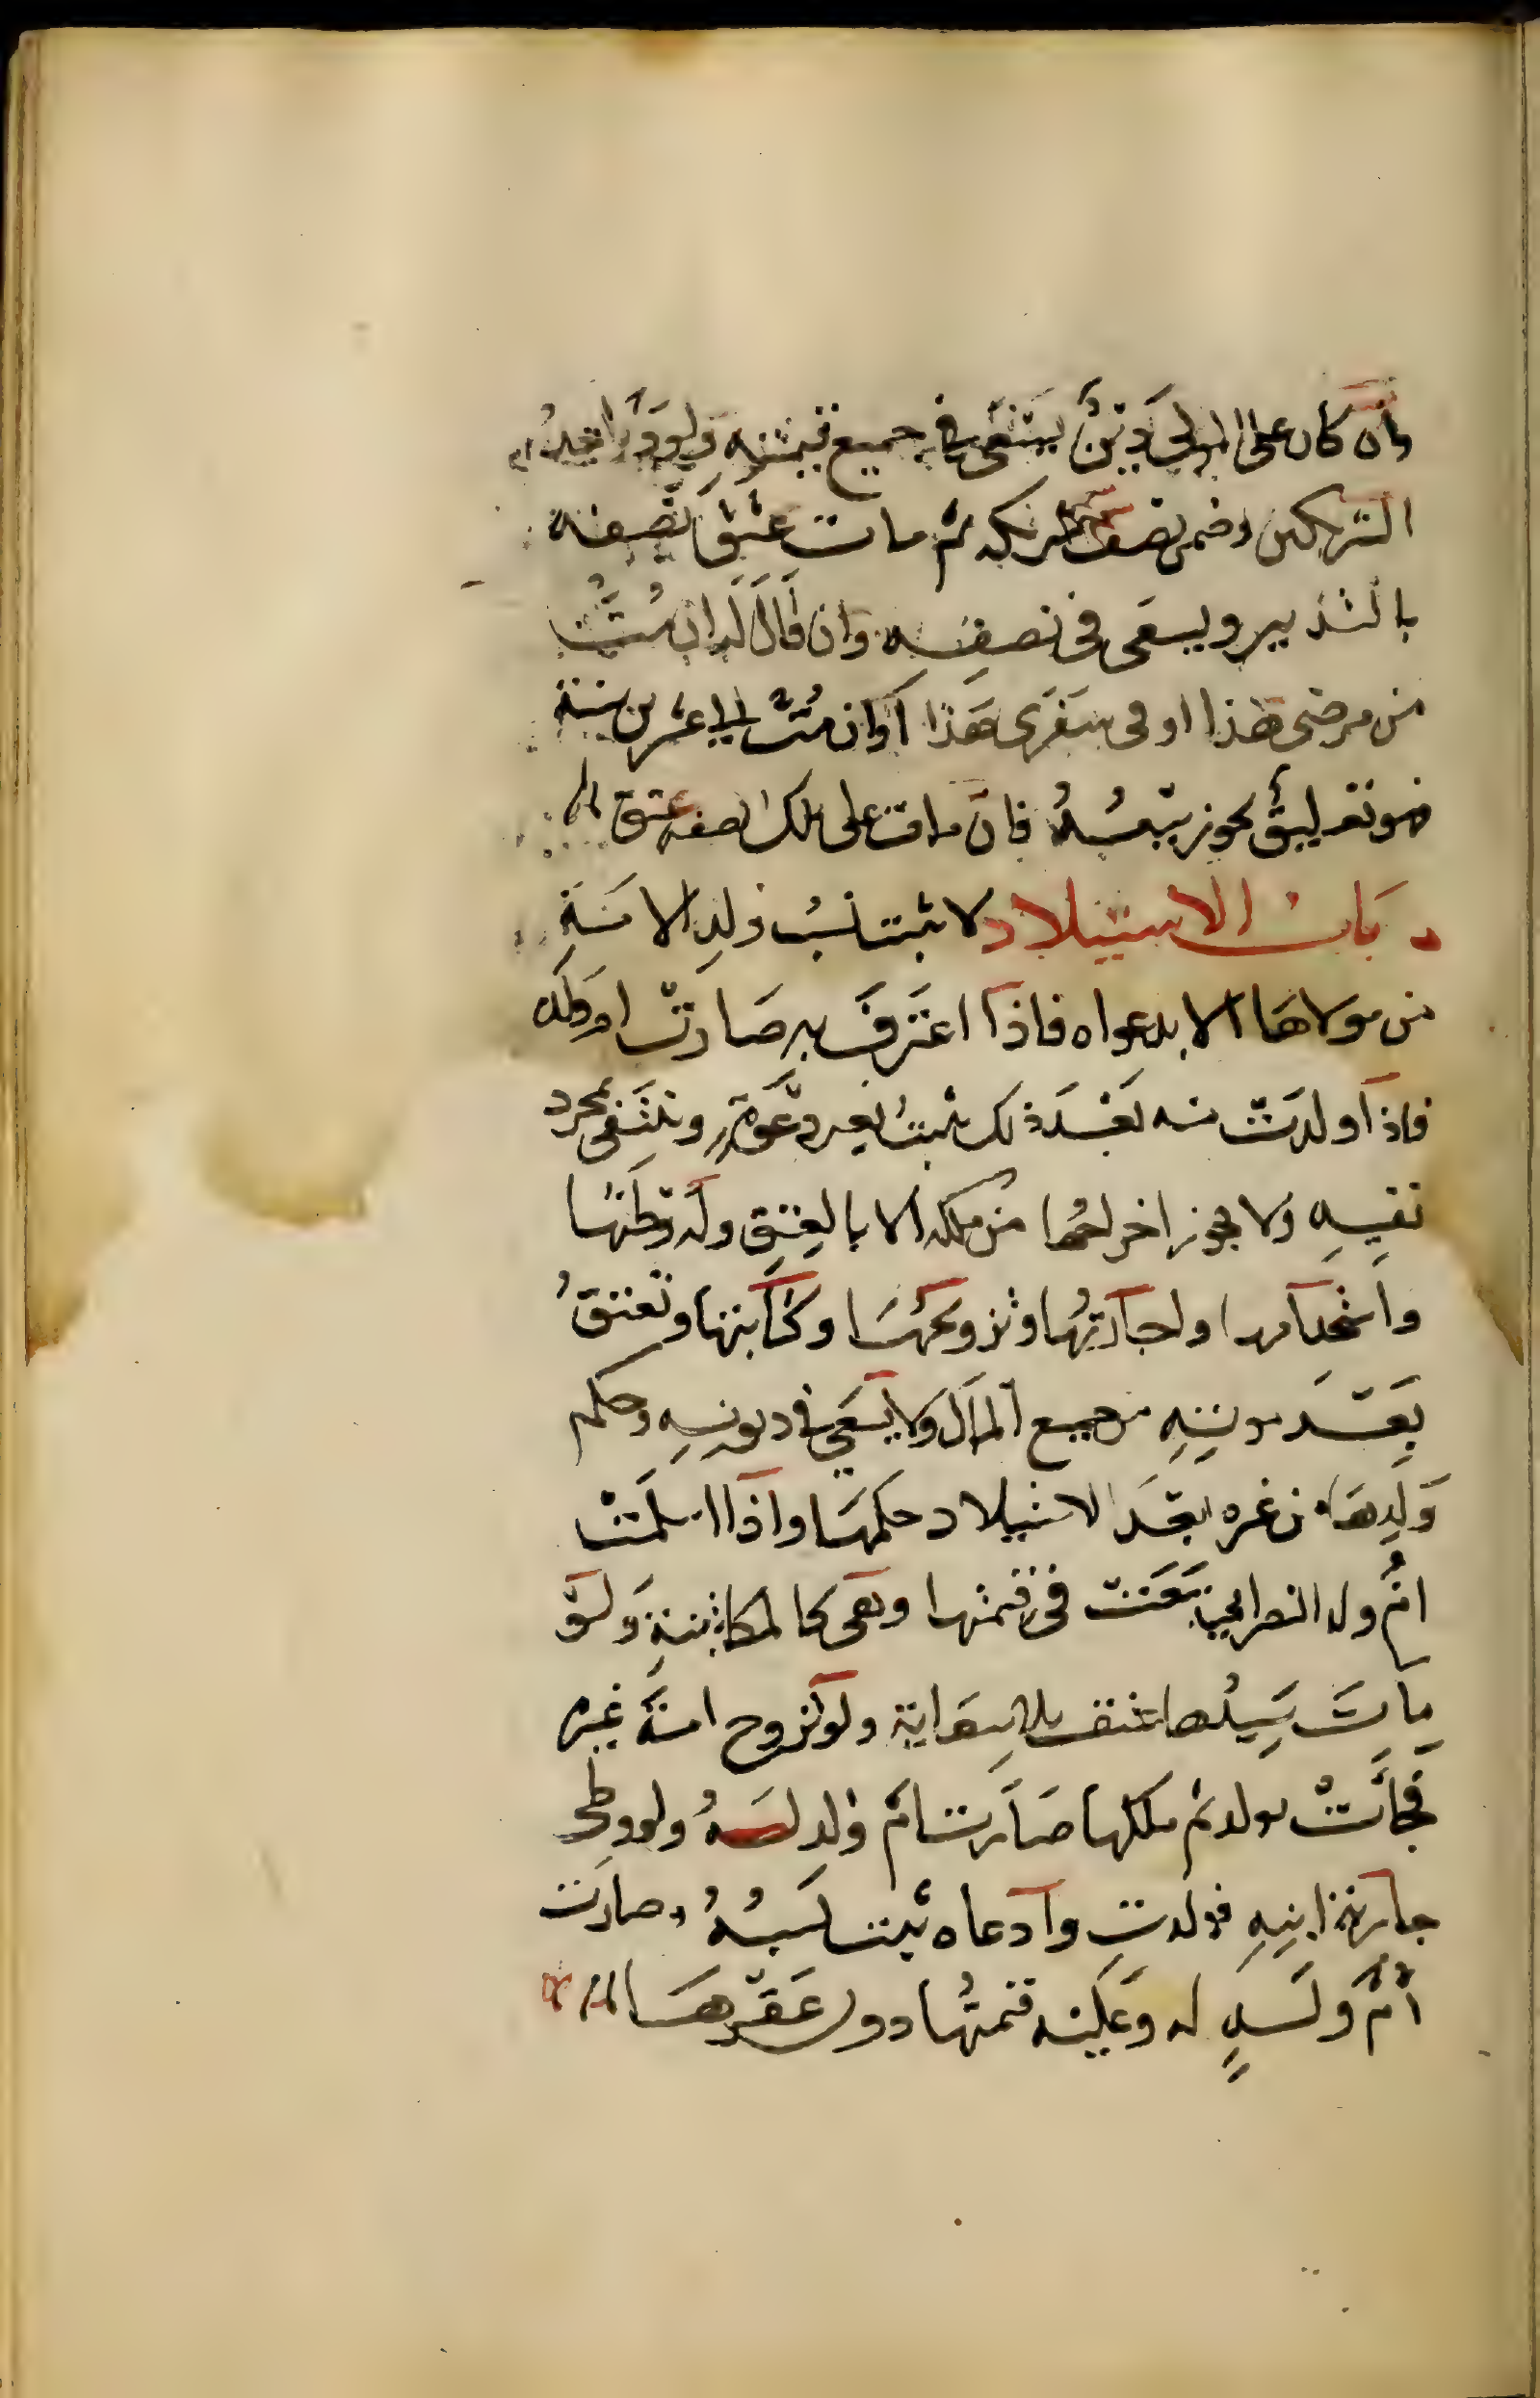 وان كان على المولى دين يسعى في جميع قيمته ولو دبر احد
الشريكين وضمن نصف شريكه ثم مات عتق نصفه
بالتدبير ويسعى في نصفه وان قال له ان مت
من مرضى هذا او في سفرى هذا او ان مت الى عشرين سنة
فهو تعليق يجوز بيعه فان مات على تلك الصفة عتق
باب الاستيلاد لا يثبت نسب ولد الامة
من مولاها الا بدعواه فاذا اعترف به صارت ام ولد
فاذا ولدت منه بعد ذلك يثبت بغير دعوة وينتفى بمجرد
نفيه ولا يجوز اخراجها من ملكه الا بالعتق وله وطئها
واستخدامها واجارتها وتزويجها وكتابتها وتعتق
بعد موته من جميع المال ولا يسعى في ديونه وحكم
ولدها من غيره بعد الاستيلاد حكمها واذا اسلمت
ام ولد النصراني سعت في قيمتها وهي كالمكاتبة ولو
مات سيدها عتقت بلا سعاية ولو تزوج امة غيره
فجاءت بولد ثم ملكها صارت ام ولد له ولو وطى
جارية ابنه فولدت وادعاه يثبت نسبه وصارت
ام ولد له وعليه قيمتها دون عقرها